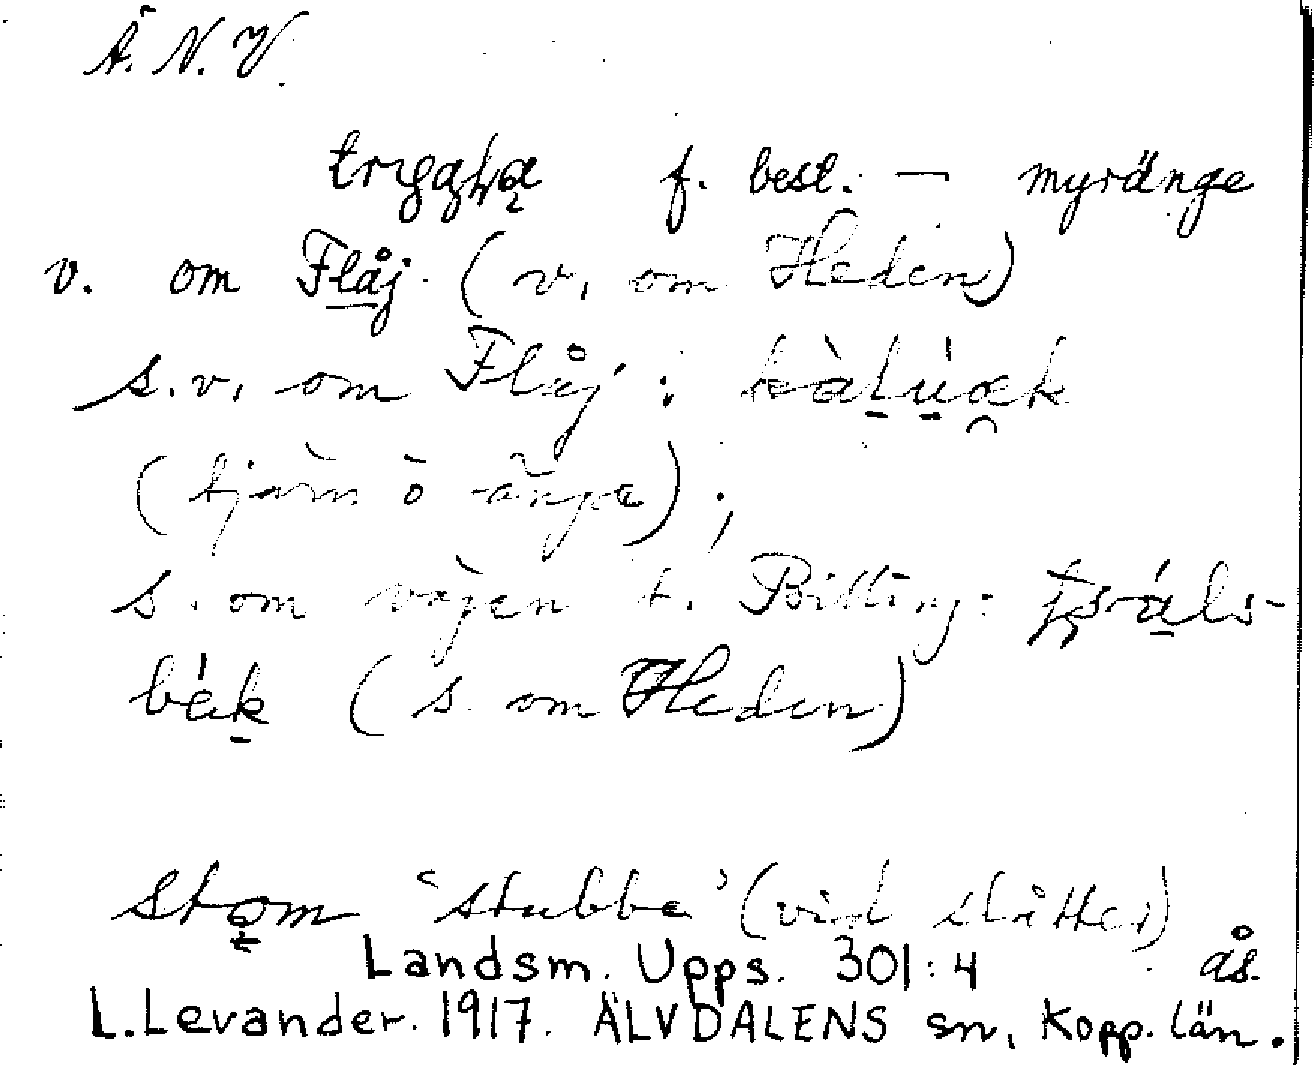 Å. N. V.
f. best. — myränge
v. om Flåj. (v. om Heden)
s.v. om Flåj:
(tjärn ò änge);
s. om vägen t. Billing:
(s. om Heden)
'stubbe' (vid slåtter)
Landsm. Upps. 301:4 ås.
L. Levander. 1917. ÄLVDALENS sn, Kopp. län.